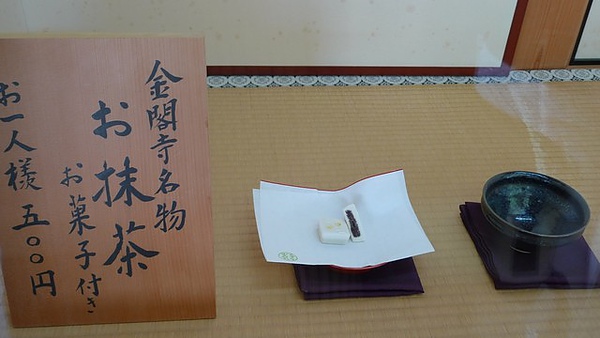 金閣寺名物
お抹茶
お菓子付き
お一人様 五〇〇円